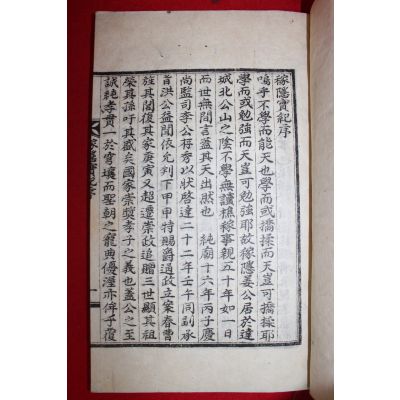 稼隱實紀序
嗚乎不學而能天也學而或撟揉而天豈可撟揉耶
學而或勉強而天豈可勉強耶故稼隱姜公居於達
城北公山之陰不學無讀樵稼事親五十年如一日
而世無間言蓋其天出然也 純廟十六年丙子慶
尚監司李公存秀以狀啓達二十二年壬午同副承
旨洪公益聞依允判下甲申特賜爵通政立案春曹
旌其閭復其家庚寅又超遷崇政追贈三世顯其祖
榮其孫吁其盛矣國家崇奬孝子之義也蓋公之至
誠純孝貫一於穹壤而聖朝之寵典優渥亦俾于覆
稼隱實紀序
一